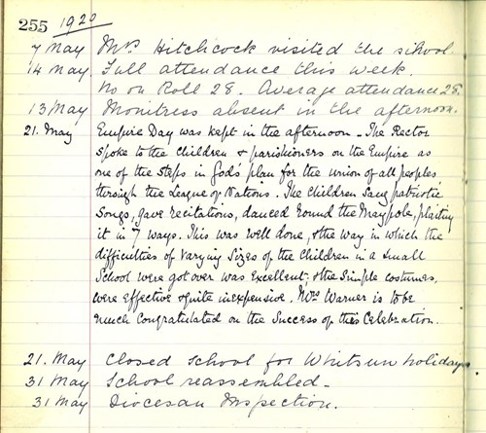 255 1920
7 May Mrs Hitchcock visited the school.
14 May Full attendance this week.
No on Roll 28. Average attendance 28.
13 May Monitress absent in the afternoon.
21. May Empire Day was kept in the afternoon - The Rector
spoke to the children & parishioners on the Empire as
one of the steps in God's plan for the union of all peoples
through the League of Nations. The children sang patriotic
songs, gave recitations, danced round the Maypole, plaiting
it in 7 ways. This was well done, & the way in which the
difficulties of varying sizes of the children in a small
School were got over was excellent; & the simple costumes,
were effective & quite inexpensive. Mrs Warner is to be
much congratulated on the success of this Celebration.
21. May Closed school for Whitsun holidays
31 May School reassembled -
31 May Diocesan Inspection.